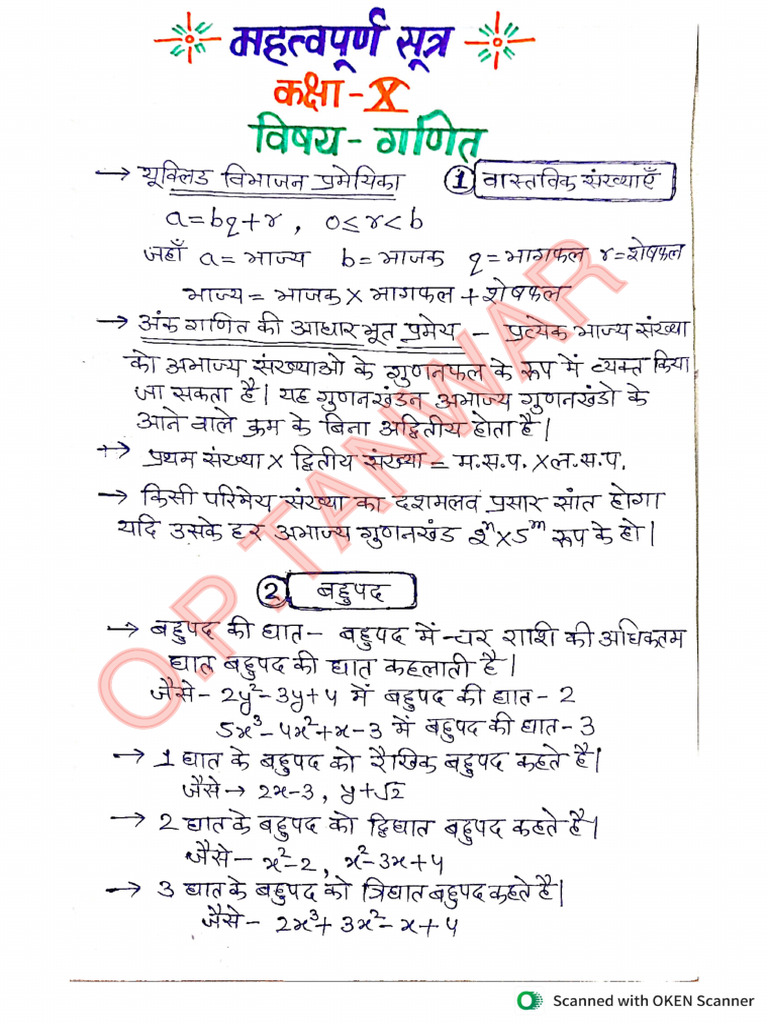 महत्वपूर्ण सूत्र
कक्षा - X
विषय - गणित
→ यूक्लिड विभाजन प्रमेयिका ① वास्तविक संख्याएँ
a = bq + r , 0 ≤ r < b
जहाँ a = भाज्य b = भाजक q = भागफल r = शेषफल
भाज्य = भाजक × भागफल + शेषफल
→ अंक गणित की आधार भूत प्रमेय – प्रत्येक भाज्य संख्या
को अभाज्य संख्याओ के गुणनफल के रूप में व्यक्त किया
जा सकता है। यह गुणनखंडन अभाज्य गुणनखंडो के
आने वाले क्रम के बिना अद्वितीय होता है।
→ प्रथम संख्या × द्वितीय संख्या = म.स.प. × ल.स.प.
→ किसी परिमेय संख्या का दशमलव प्रसार सांत होगा
यदि उसके हर अभाज्य गुणनखंड 2ⁿ × 5ᵐ रूप के हो।
② बहुपद
→ बहुपद की घात - बहुपद में चर राशि की अधिकतम
घात बहुपद की घात कहलाती है।
जैसे - 2y² - 3y + 4 में बहुपद की घात - 2
5x³ - 4x² + x - 3 में बहुपद की घात - 3
→ 1 घात के बहुपद को रैखिक बहुपद कहते है।
जैसे → 2x - 3 , y + √2
→ 2 घात के बहुपद को द्विघात बहुपद कहते है।
जैसे - x² - 2 , x² - 3x + 4
→ 3 घात के बहुपद को त्रिघात बहुपद कहते है।
जैसे - 2x³ + 3x² - x + 4
O.P. TANWAR
Scanned with OKEN Scanner